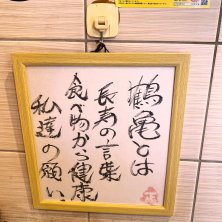 鶴亀とは
長寿の言葉
食べ物から健康
私達の願い